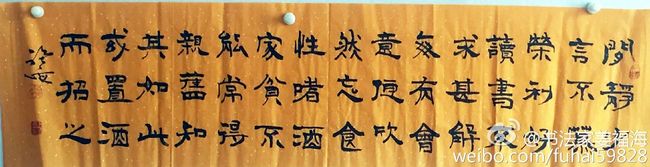 閑靜少
言不慕
榮利好
讀書不
求甚解
每有會
意便欣
然忘食
性嗜酒
家貧不
能常得
親舊知
其如此
或置酒
而招之
@书法家姜福海
weibo.com/fuhai59828